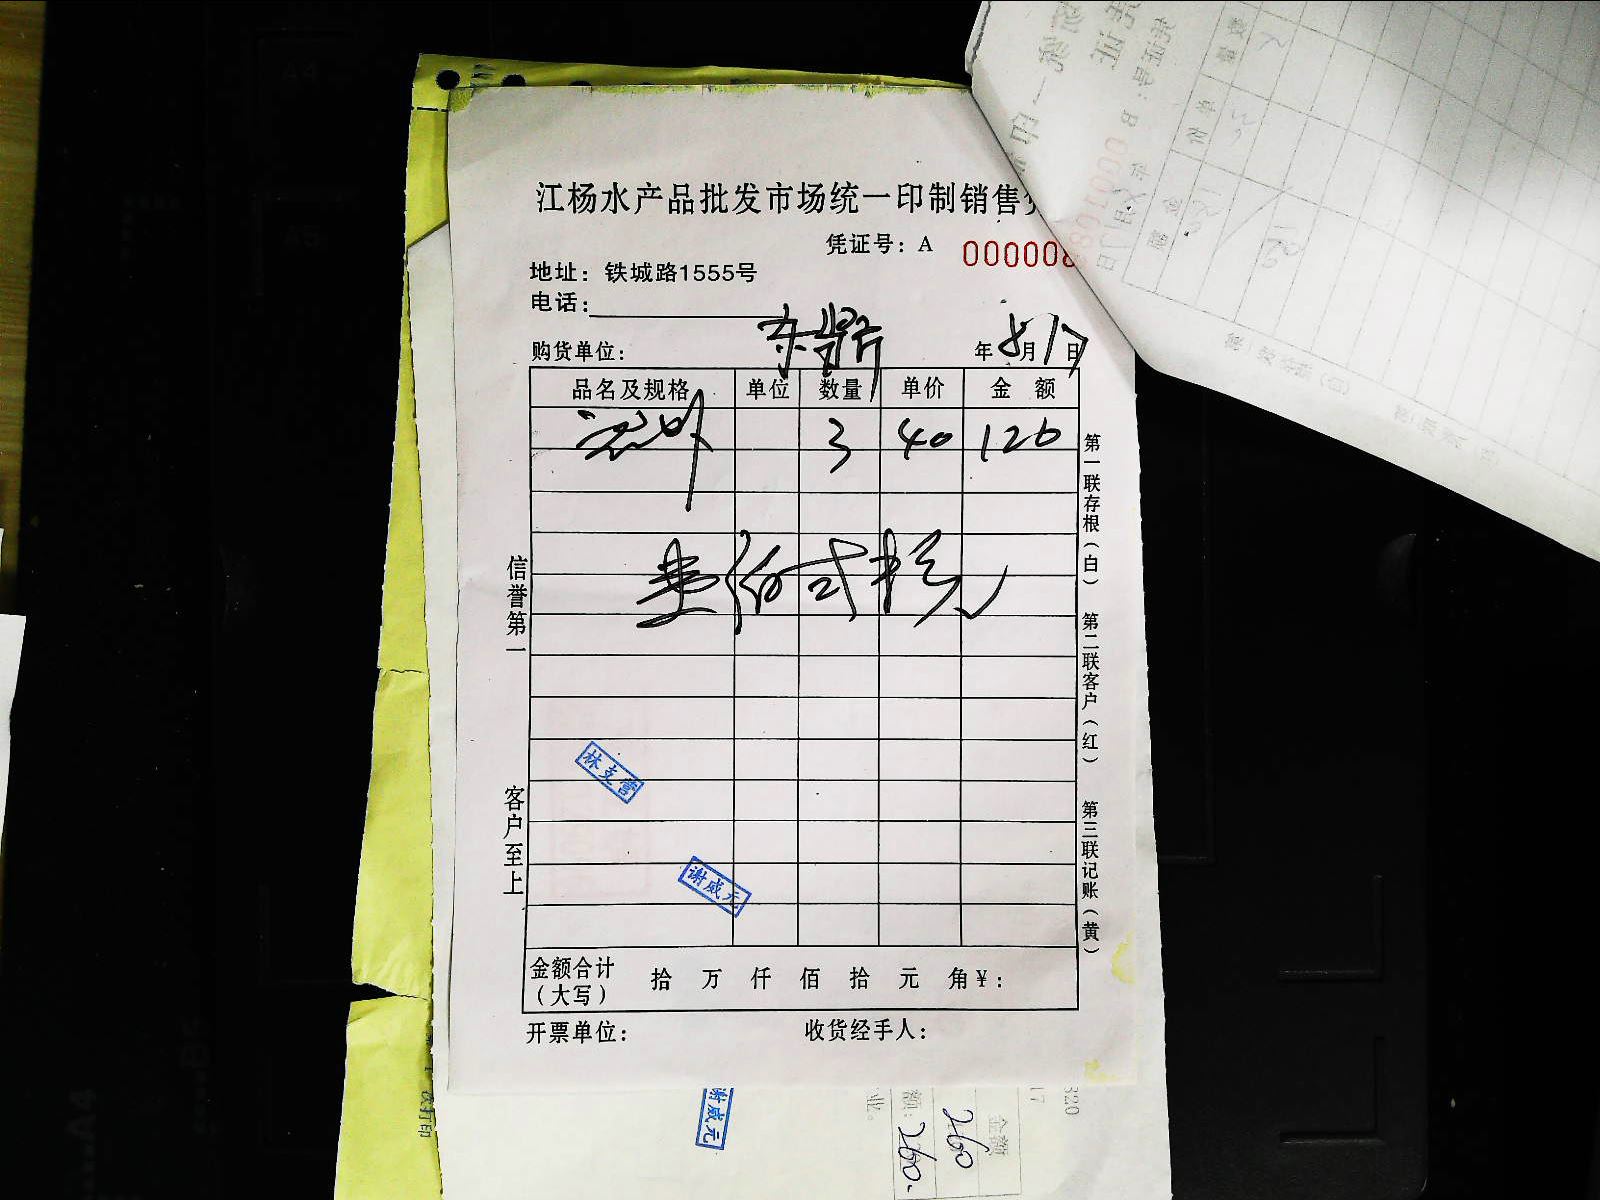 江杨水产品批发市场统一印制销售
凭证号：A 000008
地址：铁城路1555号
电话：
购货单位： 年8月1日
品名及规格 单位 数量 单价 金额
3 40 120
壹佰贰拾元
信誉第一
客户至上
第一联存根（白）
第二联客户（红）
第三联记账（黄）
林支营
谢威元
金额合计 拾 万 仟 佰 拾 元 角 ¥：
（大写）
开票单位： 收货经手人：
谢威元
次打印
业。
额：260.
金额
260
320
17
A4
A5
凭证号：B